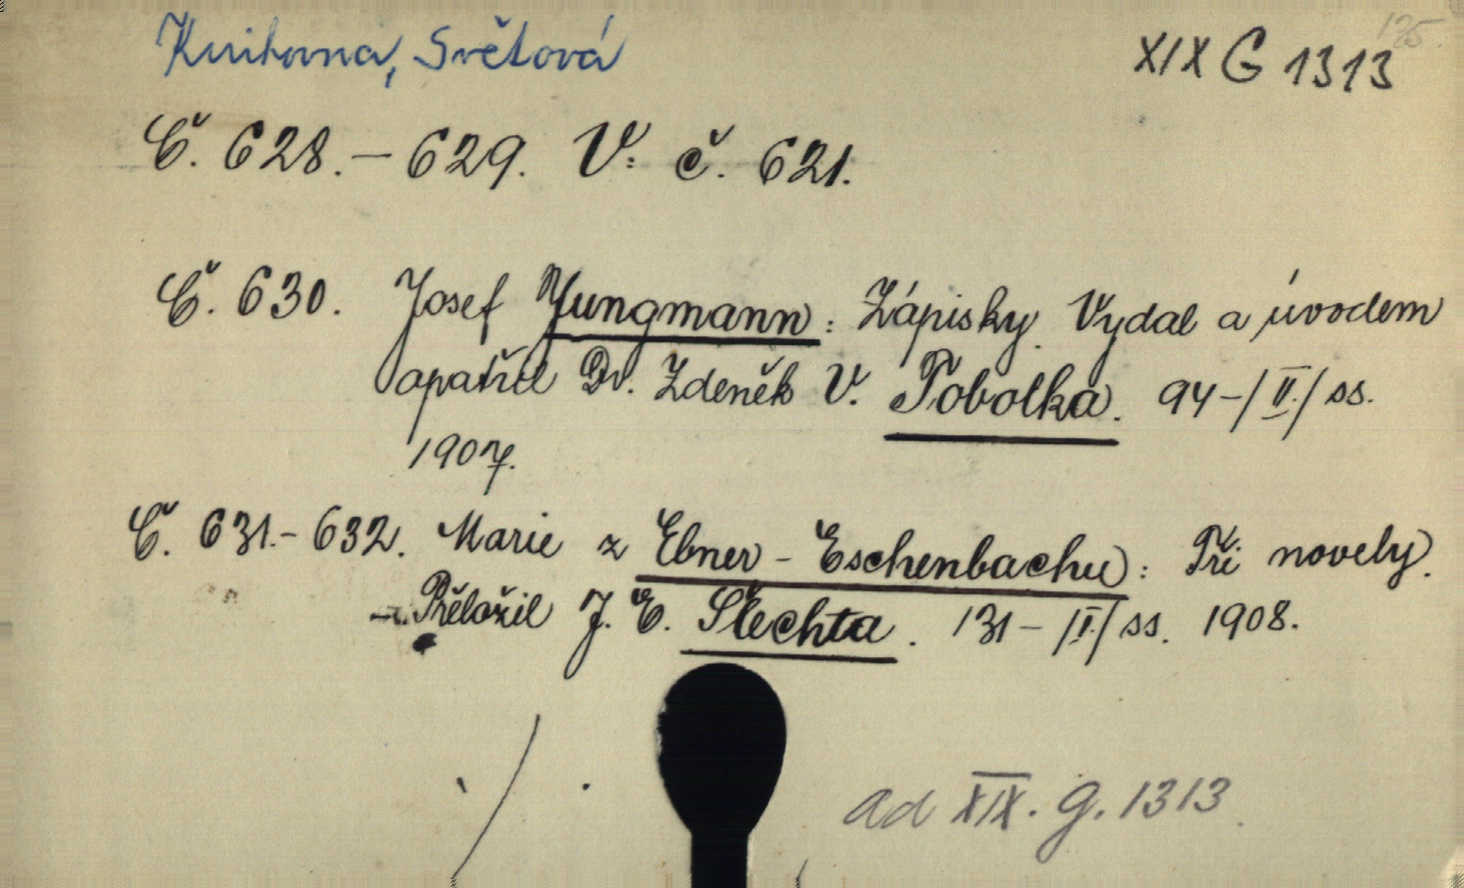 175.
Knihovna, Světová XIX G 1313
Č. 628.–629. V: č. 621.
Č. 630. Josef Jungmann: Zápisky. Vydal a úvodem
opatřil Dr. Zdeněk V. Tobolka. 94–/II./ ss.
1907.
Č. 631.–632. Marie z Ebner-Eschenbachu: Tři novely.
Přeložil J. E. Šlechta. 131–/I./ ss. 1908.
ad XIX. g. 1313